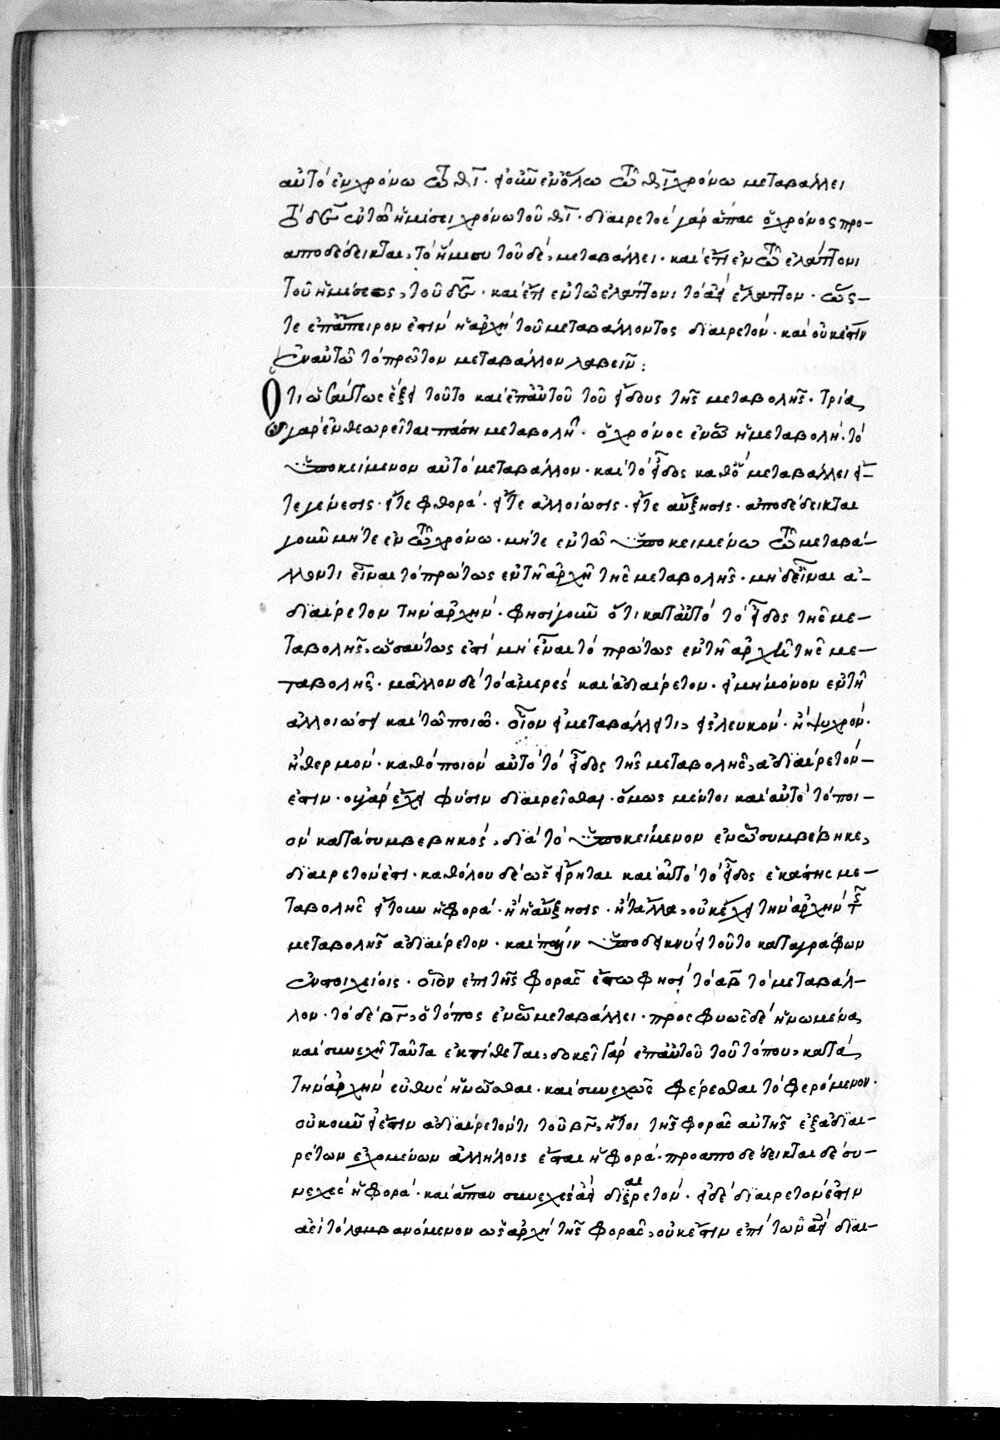 αὐτὸ ἐν χρόνω τῶ θι· εἰ οὖν ἐν ὅλω τῶ θι χρόνω μεταβάλλει
τὸ δε ἐν τῶ ἡμίσει χρόνω τοῦ θι· διαιρετὸς γὰρ ἅπας ὁ χρόνος προ-
αποδέδεικται, τὸ ἥμισυ τοῦ δε, μεταβάλλει· καὶ ἔτι ἐν τῶ ἐλάττονι
τοῦ ἡμίσεος, τοῦ δε· καὶ ἔτι ἐν τῶ ἐλάττονι τὸ ἀεὶ ἔλαττον· ὥς-
τε ἐπ' ἄπειρον ἐστὶν ἡ ἀρχὴ τοῦ μεταβάλλοντος διαιρετόν· καὶ οὐκ ἔστιν
ἐν αὐτῶ τὸ πρῶτον μεταβάλλον λαβεῖν:
Ὅτι ὡσαύτως ἕξει τοῦτο καὶ ἐπ' αὐτοῦ τοῦ εἴδους τῆς μεταβολῆς· τρία
γὰρ ἐνθεωρεῖται πάση μεταβολῆ· ὁ χρόνος ἐν ὧ ἡ μεταβολή· τὸ
ὑποκείμενον αὐτὸ μεταβάλλον· καὶ τὸ εἶδος καθ' ὃ μεταβάλλει εἴ-
τε γένεσις· εἴτε φθορά· εἴτε ἀλλοίωσις· εἴτε αὔξησις· ἀποδέδεικται
γοῦν μήτε ἐν τῶ χρόνω· μήτε ἐν τῶ ὑποκειμένω τῶ μεταβά-
λλοντι εἶναι τὸ πρώτως ἐν τῆ ἀρχῆ τῆς μεταβολῆς· μὴ δ' εἶναι ἀ-
διαίρετον τὴν ἀρχήν· φησὶ γοῦν ὅτι κατ' αὐτὸ τὸ εἶδος τῆς με-
ταβολῆς, ὡσαύτως ἐστὶ μὴ εἶναι τὸ πρώτως ἐν τῆ ἀρχῆ τῆς με-
ταβολῆς· μᾶλλον δὲ τὸ ἀμερὲς καὶ ἀδιαίρετον· εἰ μὴ μόνον ἐν τῆ
ἀλλοιώσει καὶ τῶ ποιῶ· οἷον εἰ μεταβάλλει τι, εἰς λευκόν· ἢ ψυχρόν·
ἢ θερμόν· καθὸ ποιὸν αὐτὸ τὸ εἶδος τῆς μεταβολῆς, ἀδιαίρετόν-
ἐστιν· οὐ γὰρ ἔχει φύσιν διαιρεῖσθαι· ὅμως μέντοι καὶ αὐτὸ τὸ ποι-
ὸν κατὰ συμβεβηκὸς, διὰ τὸ ὑποκείμενον ἐν ὧ συμβέβηκε,
διαιρετὸν ἐστι· καθόλου δὲ ὡς εἴρηται καὶ αὐτὸ τὸ εἶδος ἑκάστης με-
ταβολῆς ἤτοι ἡ φορά· ἢ ἡ αὔξησις· ἢ τἄλλα, οὐκ ἔχει τὴν ἀρχὴν τῆς
μεταβολῆς ἀδιαίρετον· καὶ πάλιν ὑποδεικνύει τοῦτο καταγράφων
ἐν στοιχείοις· οἷον ἐπὶ τῆς φορᾶς ἔστω φησὶ τὸ αβ τὸ μεταβάλ-
λον· τὸ δὲ βγ, ὁ τόπος ἐν ὧ μεταβάλλει· προσφυῶς δὲ ἡνωμένα
καὶ συνεχῆ ταῦτα ἐκτίθεται, δοκεῖ γὰρ ἐπ' αὐτοῦ τοῦ τόπου, κατὰ
τὴν ἀρχὴν εὐθὺς ἡνῶσθαι· καὶ συνεχῶς φέρεσθαι τὸ φερόμενον·
οὐκοῦν εἰ ἔστιν ἀδιαίρετόν τι τοῦ βγ, ἤτοι τῆς φορᾶς αὐτῆς ἐξ ἀδιαι-
ρέτων ἐχομένων ἀλλήλοις ἔσται ἡ φορά· προαποδέδεικται δὲ συ-
νεχὲς ἡ φορά· καὶ ἅπαν συνεχὲς ἀεὶ διαιρετόν· εἰ δὲ διαιρετὸν ἐστὶν
ἀεὶ τὸ λαμβανόμενον ὡς ἀρχὴ τῆς φορᾶς, οὐκ ἔστιν ἐπὶ τῶν ἀεὶ διαι-